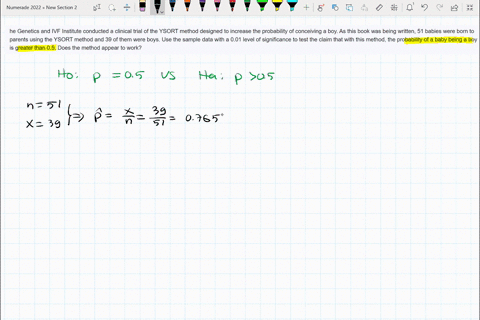 Numerade 2022 > New Section 2
he Genetics and IVF Institute conducted a clinical trial of the YSORT method designed to increase the probability of conceiving a boy. As this book was being written, 51 babies were born to
parents using the YSORT method and 39 of them were boys. Use the sample data with a 0.01 level of significance to test the claim that with this method, the probability of a baby being a boy
is greater than 0.5. Does the method appear to work?
Ho: p = 0.5 vs Ha: p > 0.5
n = 51
x = 39
⇒ p̂ = x/n = 39/51 = 0.765